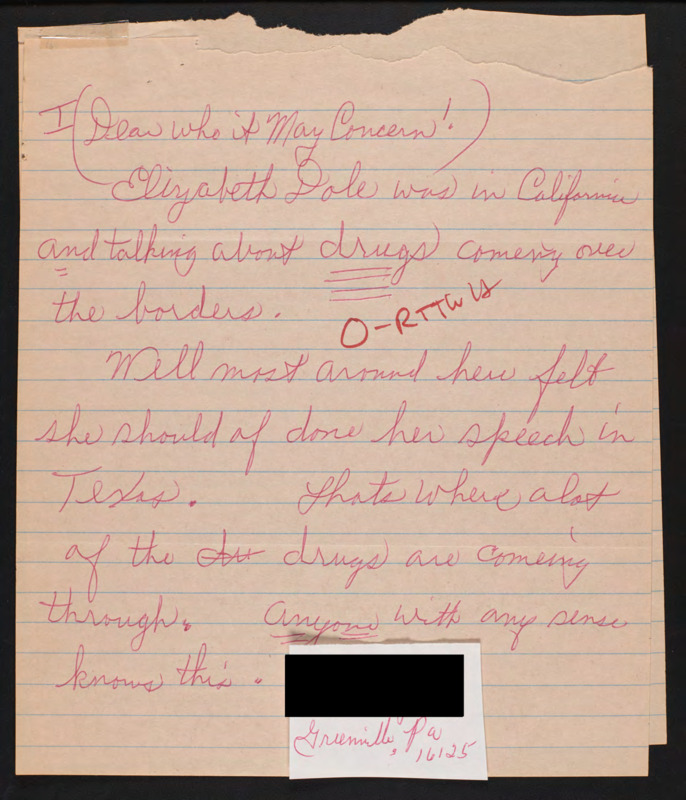 I (Dear who it May Concern!)
Elizabeth Dole was in California
and talking about drugs comeing over
the borders.
O-RTTWH
Well most around here felt
she should of done her speech in
Texas. Thats where alot
of the dru drugs are comeing
through. Anyone with any sense
knows this.
Greenville, Pa
16125